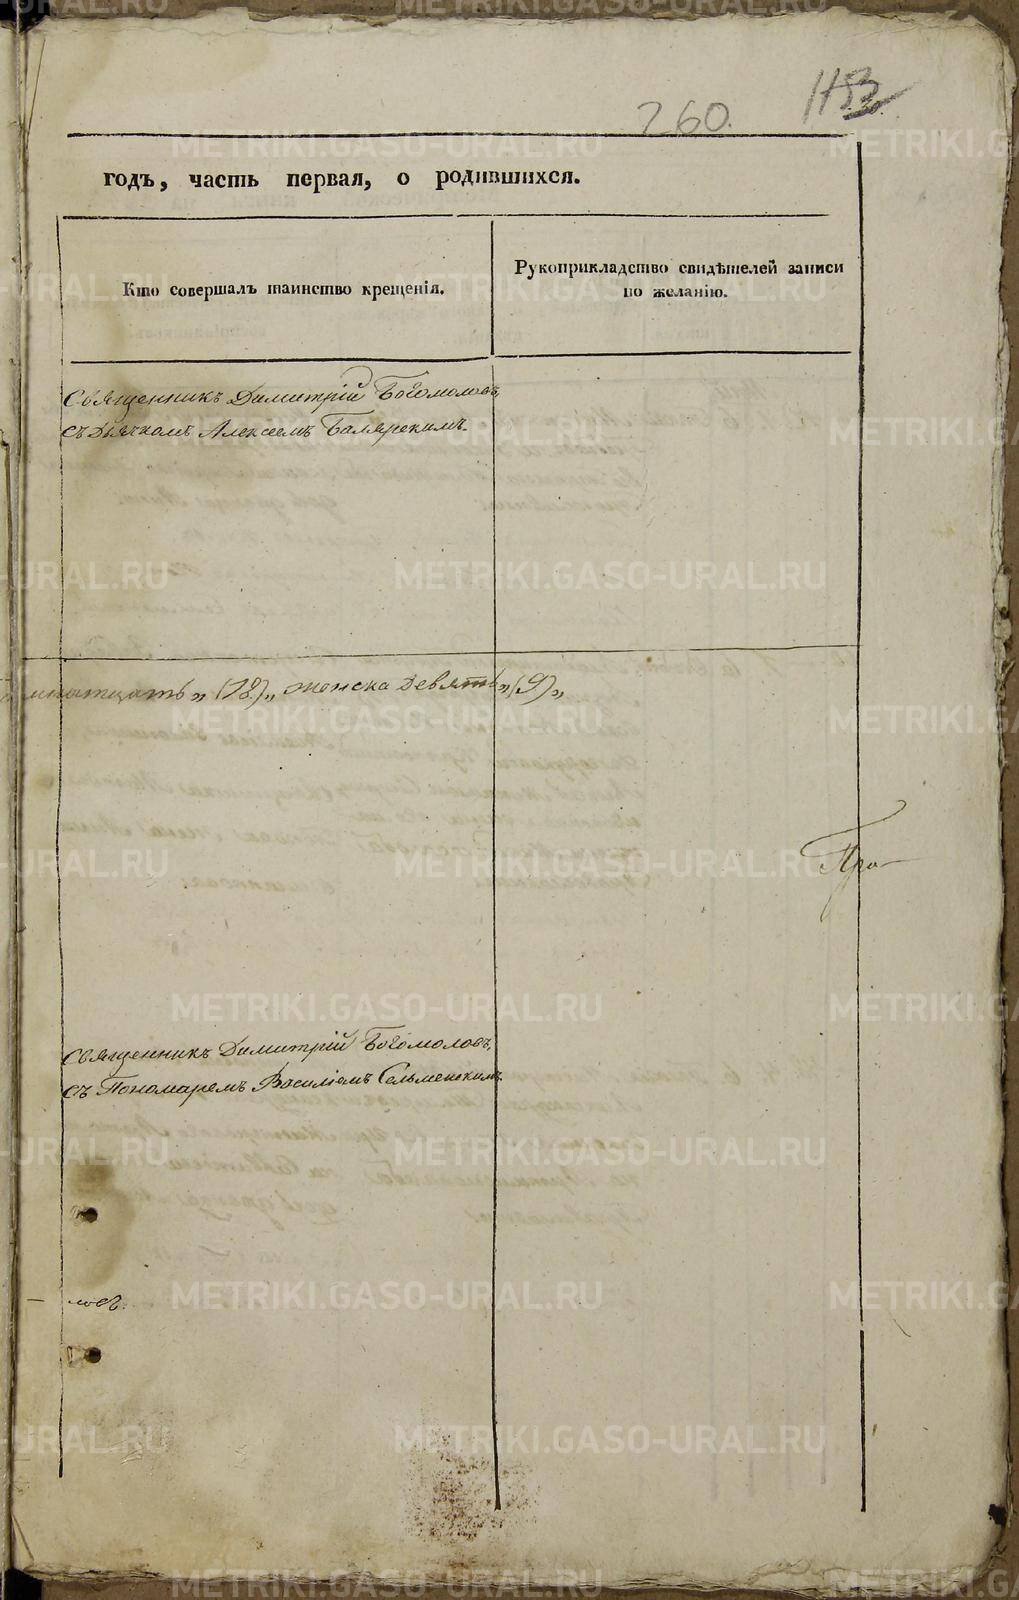 260.
годъ, часть первая, о родившихся.
Кто совершалъ таинство крещенія.
Рукоприкладство свидѣтелей записи
по желанію.
Священникъ Димитрій Богомоловъ,
съ Дьячкомъ Алексеемъ Баляrскимъ.
женска девять» (9)»
Пра-
Священникъ Димитрій Богомоловъ,
съ Пономаремъ Василіемъ Сельменскимъ.
METRIKI.GASO-URAL.RU